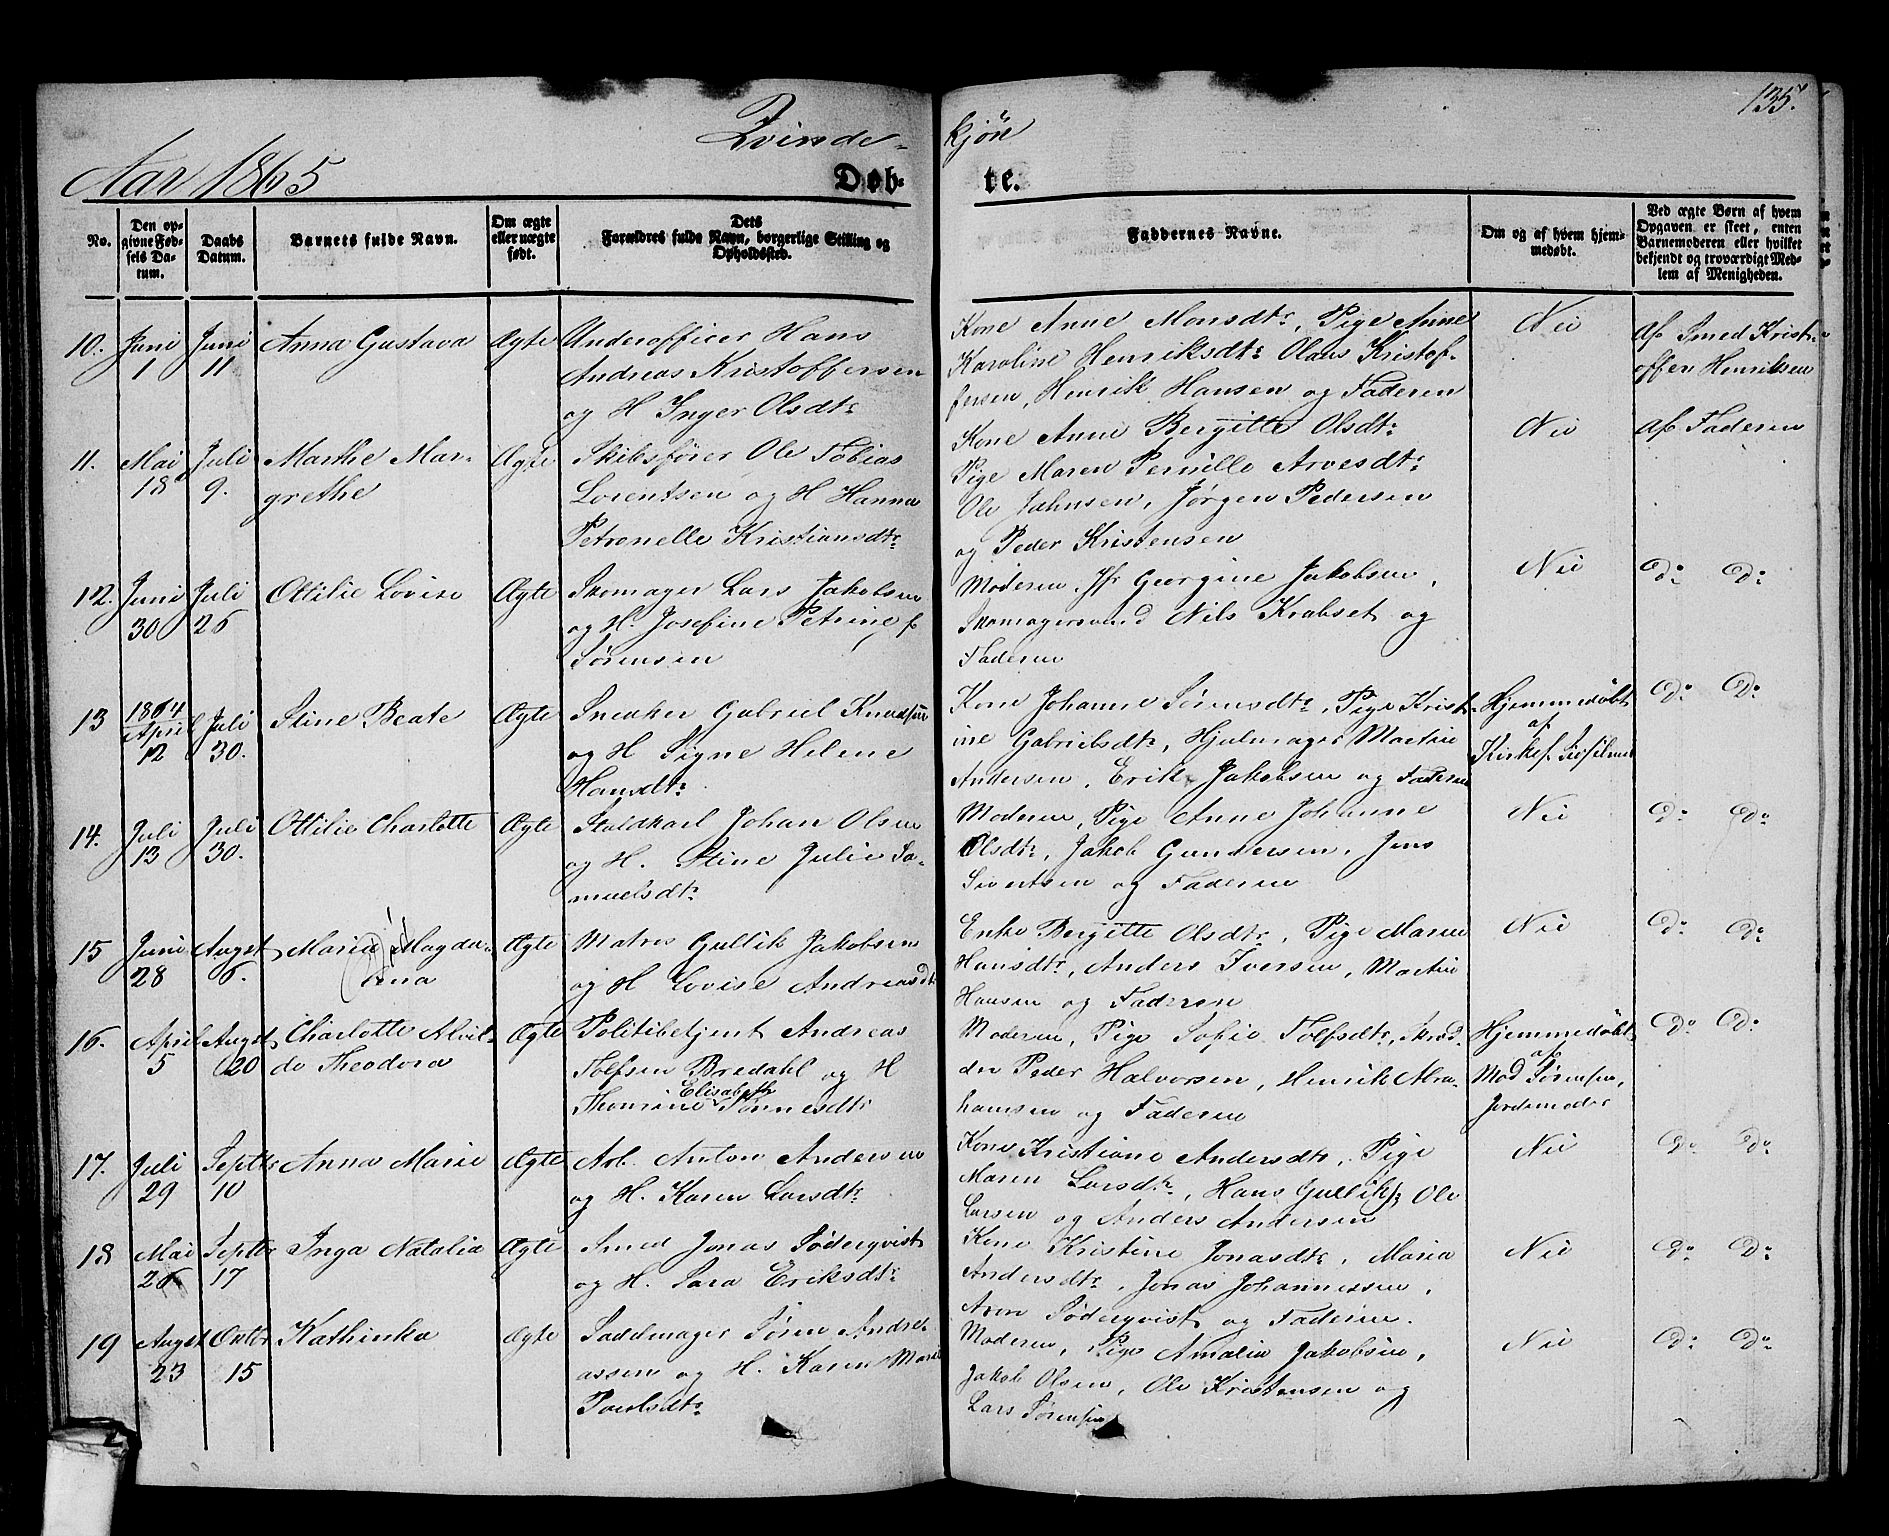 135.
Qvinde-kjøn
Aar 1865
Døb-te.
No.
Den op-
givne Fød-
sels Da-
tum.
Daabs
Datum.
Barnets fulde Navn.
Om ægte
eller uægte
født.
Dets
Forældres fulde Navn, borgerlige Stilling og
Opholdssted.
Faddernes Navne.
Om og af hvem hjem-
medøbt.
Ved ægte Børn af hvem
Opgaven er skeet, enten
Barnemoderen eller hvilket
bekjendt og troværdigt Med-
lem af Menigheden.
10. Juni 1 Juni 11 Anna Gustava Ægte
Underofficer Hans
Andreas Kristoffersen
og H Inger Olsdtr
Kone Anne Monsdtr, Pige Anne
Karoline Henriksdtr Olaus Kristof-
fersen, Henrik Hansen og Faderen
Nei
af Smed Krist-
offer Henriksen
11. Mai 18 Juli 9. Marthe Mar-
grethe
Ægte
Skibsfører Ole Tobias
Lorentsen og H Hanna
Petronelle Kristiansdtr
Kone Anne Bergitte Olsdtr
Pige Maren Pernille Arvesdtr
Ole Jahnsen, Jørgen Pedersen
og Peder Kristensen
Nei
af Faderen
12. Juni 30 Juli 26 Ottilie Lovise Ægte
Skomager Lars Jakobsen
og H. Josefine Petrine f
Sørensen
Moderen, Jfr Georgine Jakobsen,
Skomagersvend Nils Krabset og
Faderen
Nei
do do
13 1864 April 12 Juli 30. Stine Beate Ægte
Snedker Gabriel Knudsen
og H Signe Helene
Hansdtr
Kone Johanne Sørensdtr, Pige Krist-
ine Gabrielsdtr, Hjulmager Martin
Andersen, Erik Jakobsen og Faderen
Hjemmedøbt
af
Kirkes.
do do
14. Juli 13 Juli 30. Ottilie Charlotte Ægte
Staldkarl Johan Olsen
og H. Stine Julie Sa-
muelsdtr
Moderen, Pige Anne Johanne
Olsdtr, Jakob Gundersen, Jens
Sivertsen og Faderen
Nei
do do
15 Juni 28 Augst 6. Maria Magda-
lena
Ægte
Matros Gullik Jakobsen
og H Lovise Andreasdtr
Enke Bergitte Olsdtr, Pige Maren
Hansdtr, Anders Iversen, Martin
Hansen og Faderen
Nei
do do
16. April 5 Augst 20 Charlotte Alvil-
de Theodora
Ægte
Politibetjent Andreas
Tolfsen Bredahl og H
Thomine Elisabeth Tønnesdtr
Moderen, Pige Sofie Tolfsdtr, Skræd-
der Peder Halvorsen, Henrik Abra-
hamsen og Faderen
Hjemmedøbt
af
Mad Sørensen,
Jordemoder
do do
17. Juli 29 Septbr 10 Anna Marie Ægte
Arb. Anton Andersen
og H. Karen Larsdtr
Kone Kristiane Andersdtr, Pige
Maren Larsdtr, Hans Gulliks. Ole
Larsen og Anders Andersen
Nei
do do
18 Mai 26 Septbr 17 Inga Natalia Ægte
Smed Jonas Söderqvist
og H. Sara Eriksdtr
Kone Kristine Jonasdtr, Maria
Andersdtr, Jonas Johannessen,
Aron Söderqvist og Faderen.
Nei
do do
19 Augst 23 Octbr 15 Kathinka Ægte
Sadelmager Søren Andre-
assen og H. Karen Marie
Poulsdtr
Moderen, Pige Amalia Jakobsen,
Jakob Olsen, Ole Kristensen og
Lars Sørensen
Nei
do do